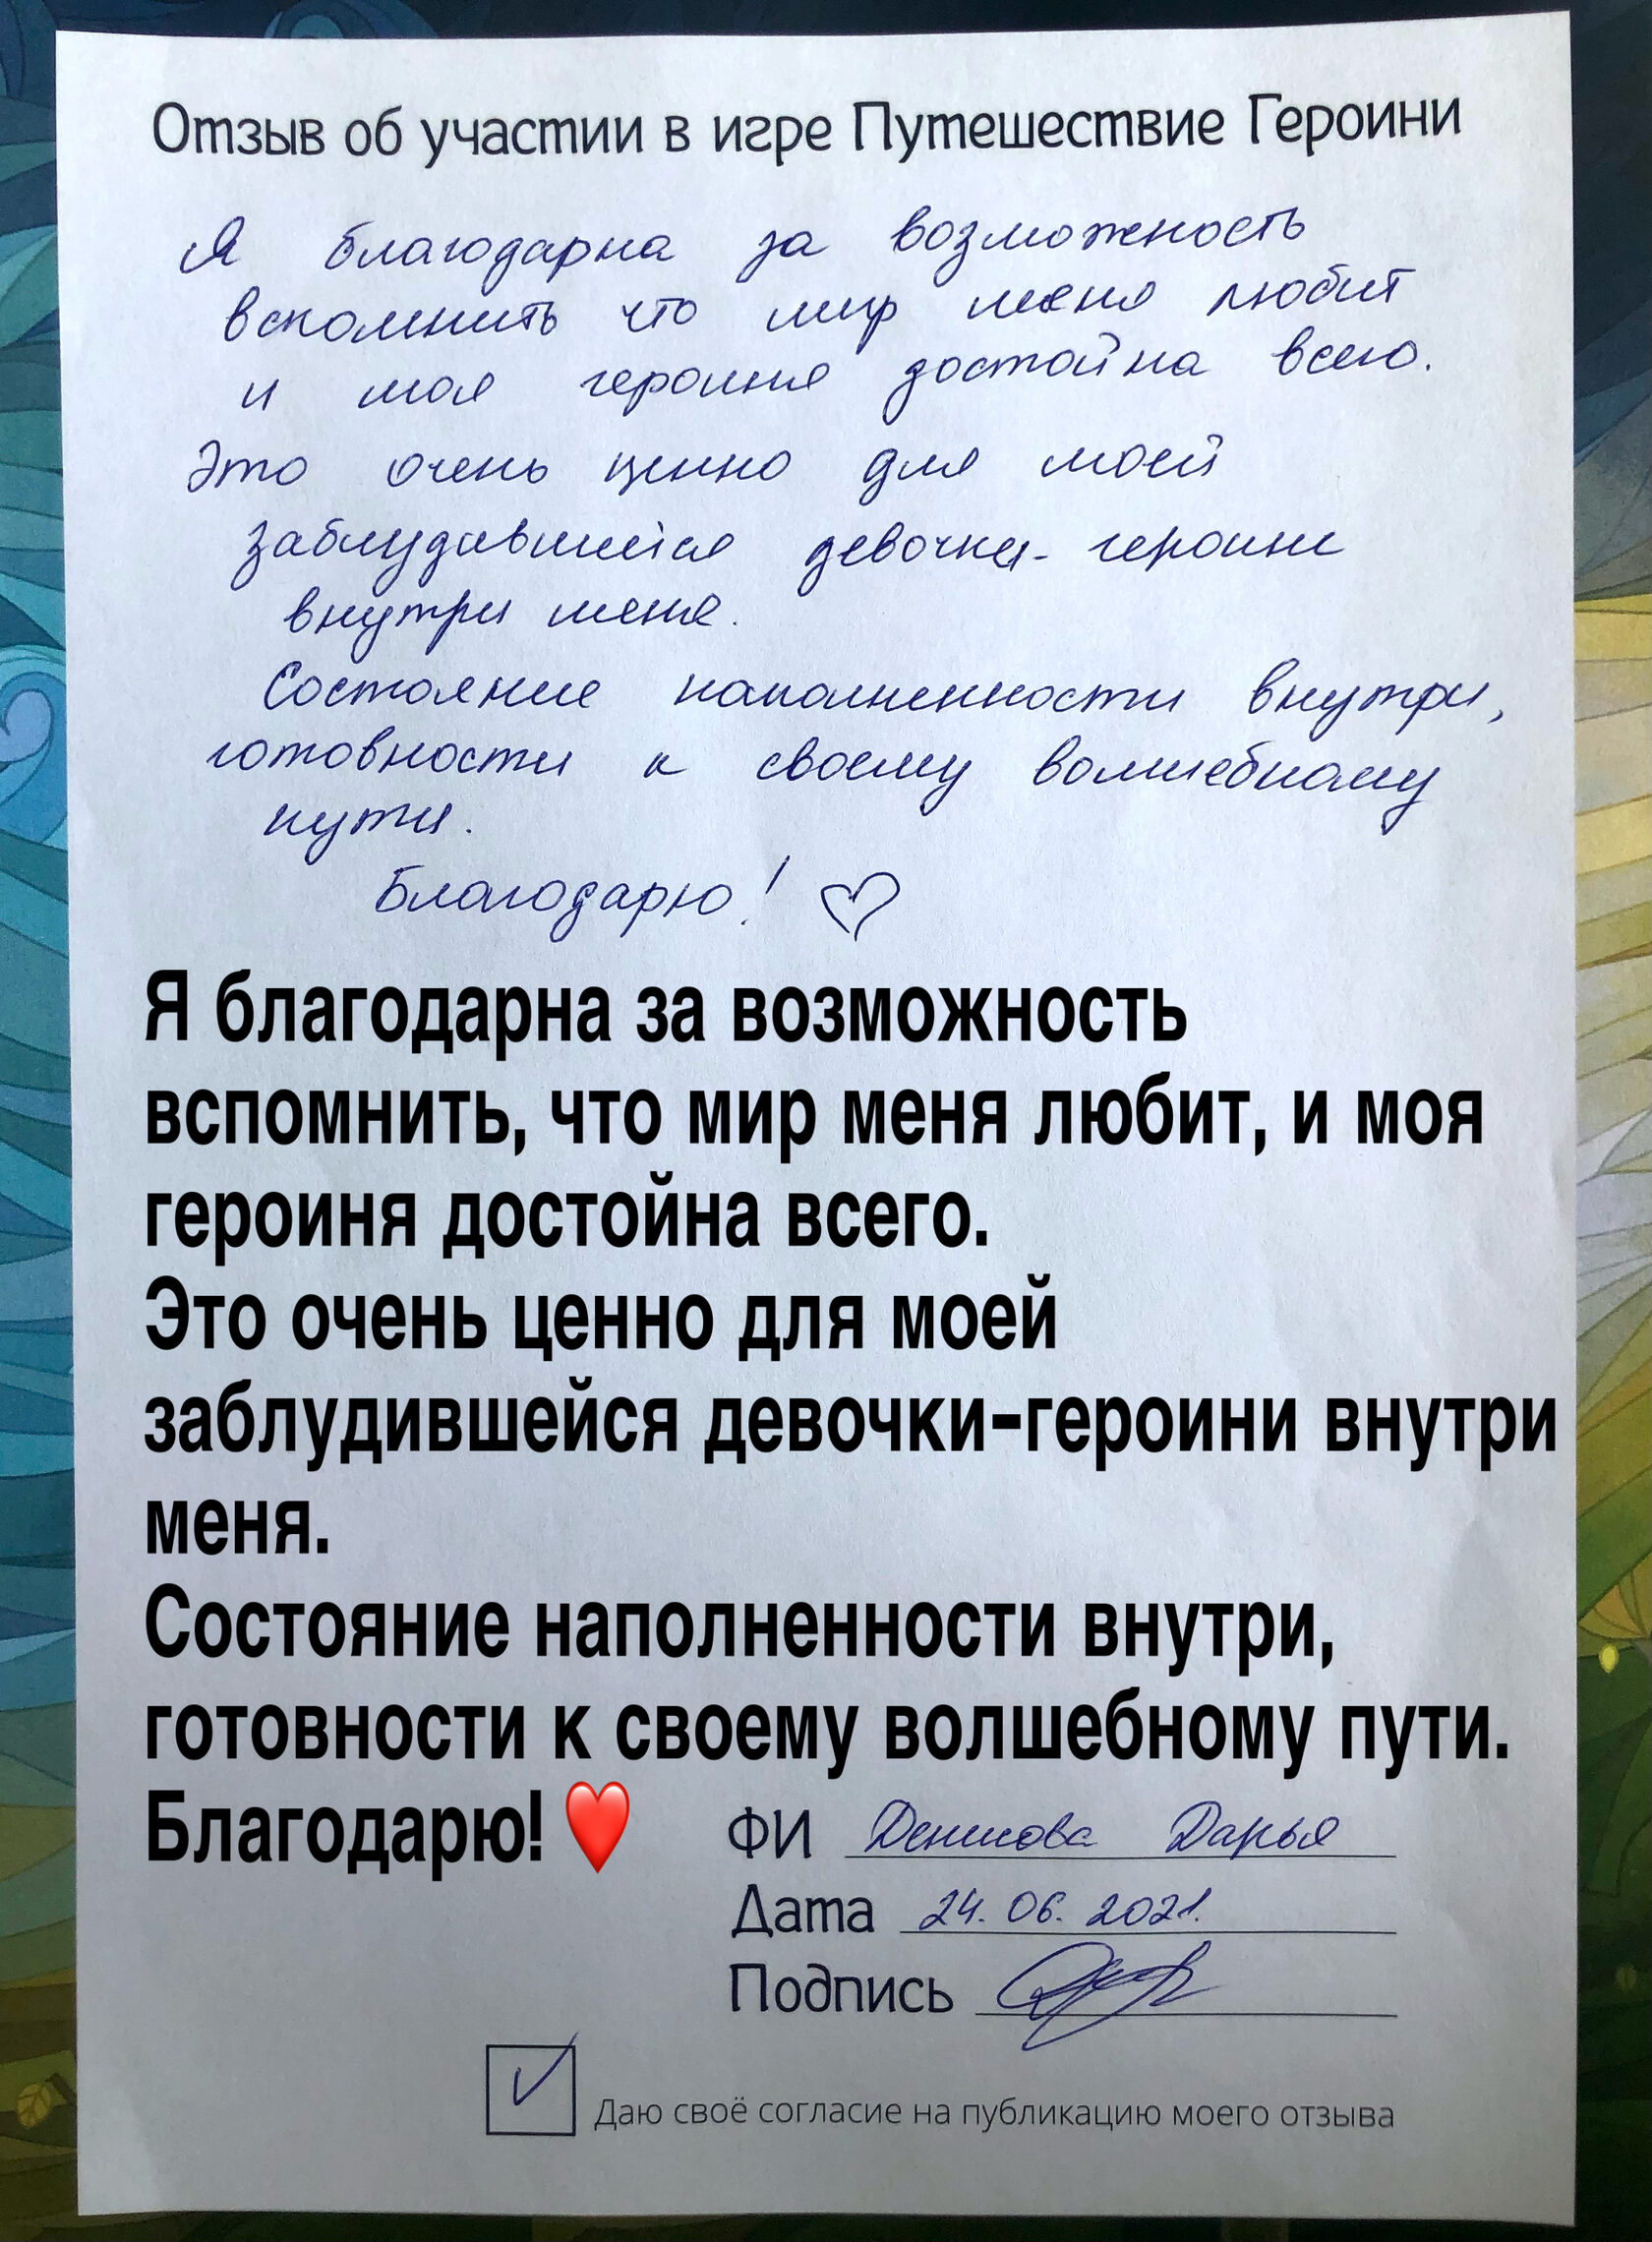 Отзыв об участии в игре Путешествие Героини
Я благодарна за возможность
вспомнить что мир меня любит
и моя героиня достойна всего.
Это очень ценно для моей
заблудившейся девочки-героини
внутри меня.
Состояние наполненности внутри,
готовности к своему волшебному
пути.
Благодарю! ♡
Я благодарна за возможность
вспомнить, что мир меня любит, и моя
героиня достойна всего.
Это очень ценно для моей
заблудившейся девочки-героини внутри
меня.
Состояние наполненности внутри,
готовности к своему волшебному пути.
Благодарю! ❤️
ФИ Денисова Дарья
Дата 24.06.2021.
Подпись
Даю своё согласие на публикацию моего отзыва